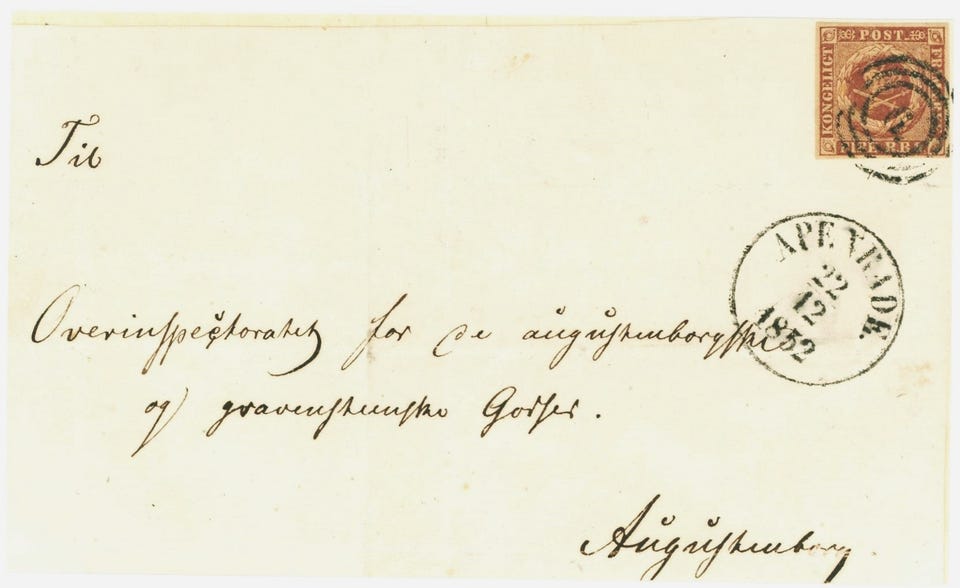 KONGELIGT POST FR
FIRE R.B.
Til
APENRADE.
22
12
1852
Overinspectoratet for de augustenborgske
og gravensteenske Godser.
Augustenborg.